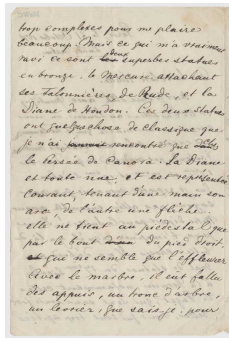 trop complexes pour me plaire
beaucoup. Mais ce qui m'a vraiment
ravi ce sont deux superbes statues
en bronze, le Mercure attachant
ses talonnières de Rude, et la
Diane de Houdon. Ces deux statues
ont quelque chose de classique que
je n'ai rencontré que dans
le Persée de Canova. La Diane
est toute nue, et est représentée
courant, tenant d'une main son
arc, de l'autre une flèche.
elle ne tient au piédestal que
par le bout du pied droit,
qui ne semble que l'effleurer
Avec le marbre, il eut fallu
des appuis, un tronc d'arbre,
un levrier, que sais-je, pour